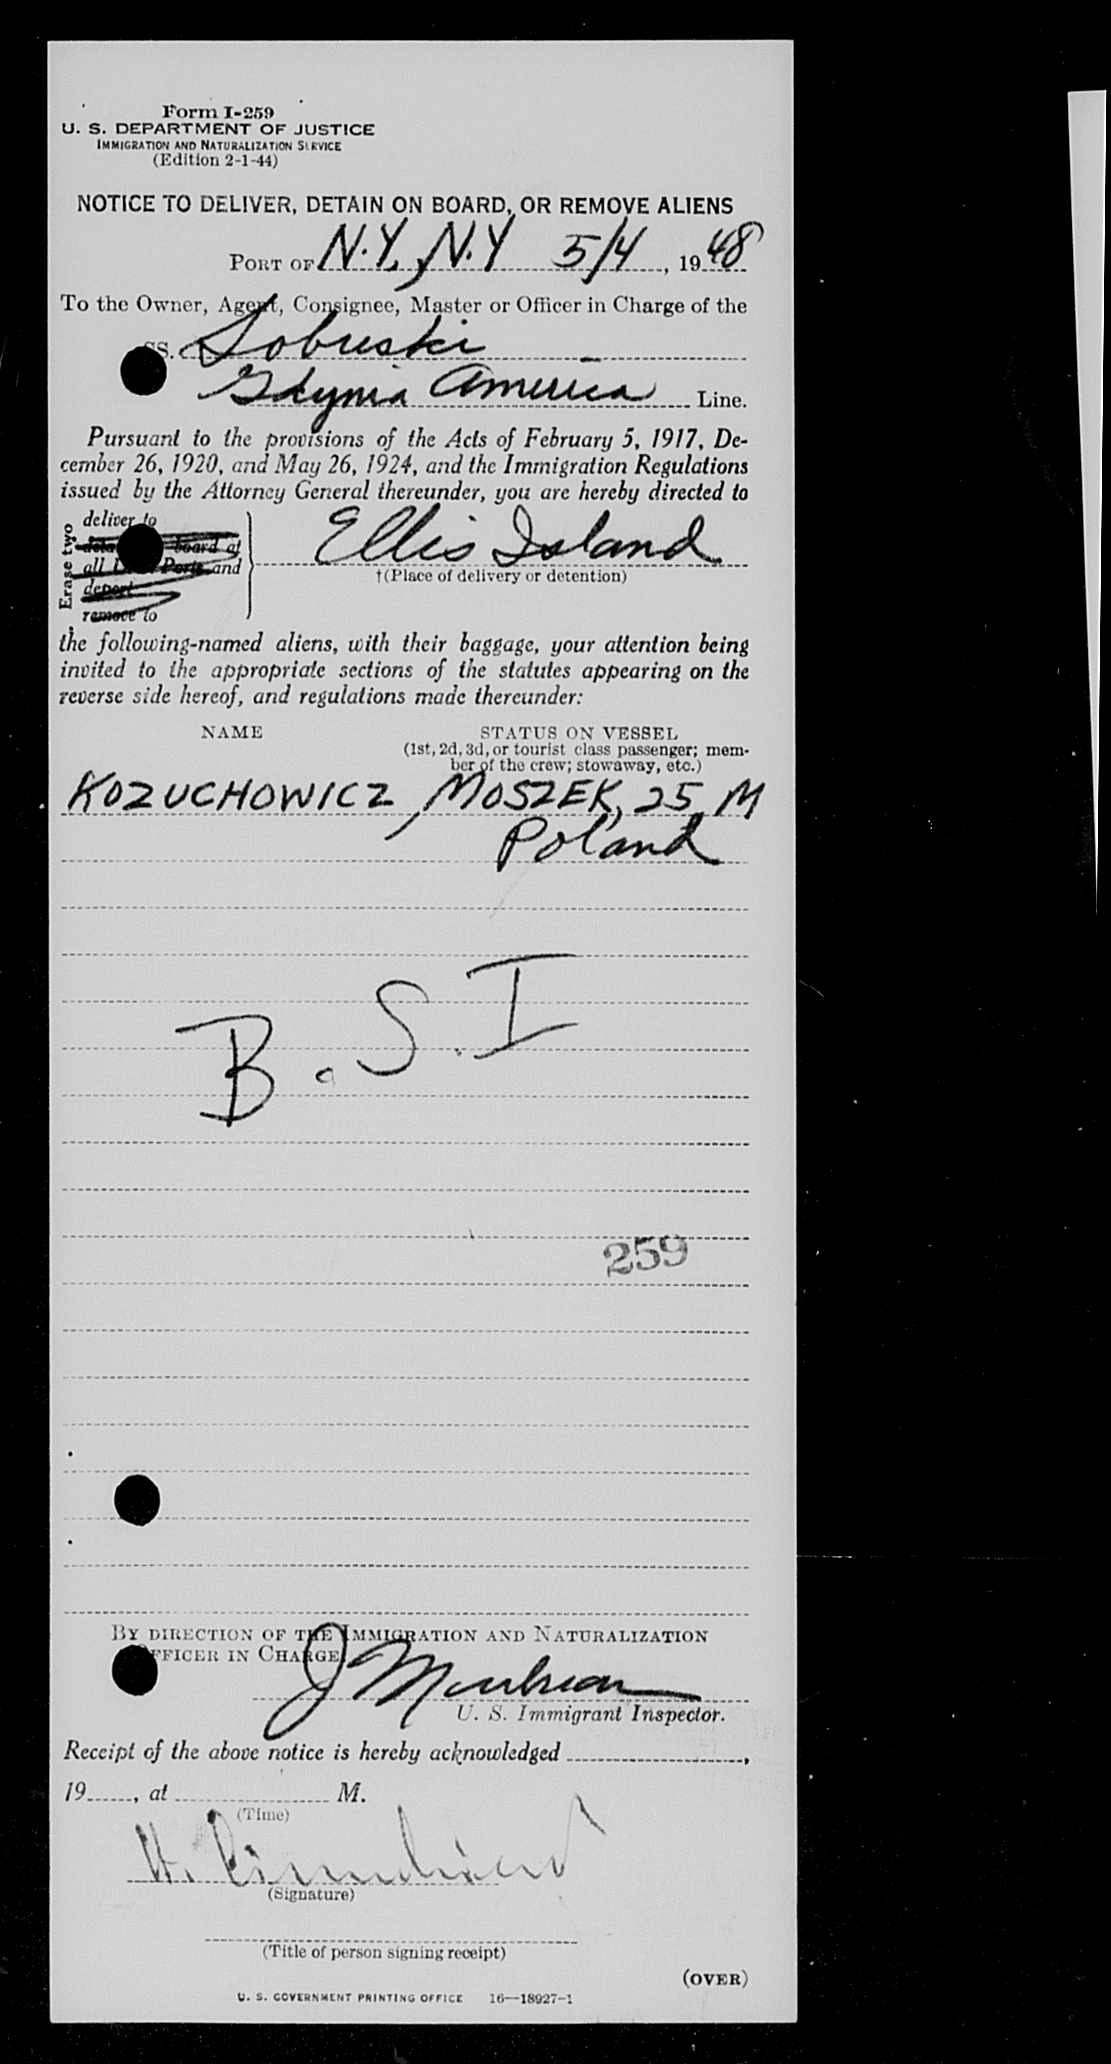 Form I-259
U. S. DEPARTMENT OF JUSTICE
IMMIGRATION AND NATURALIZATION SERVICE
(Edition 2-1-44)
NOTICE TO DELIVER, DETAIN ON BOARD, OR REMOVE ALIENS
PORT OF N.Y., N.Y 5/4, 1948
To the Owner, Agent, Consignee, Master or Officer in Charge of the
SS. Sobieski
Gdynia America Line.
Pursuant to the provisions of the Acts of February 5, 1917, De-
cember 26, 1920, and May 26, 1924, and the Immigration Regulations
issued by the Attorney General thereunder, you are hereby directed to
Erase two
deliver to
board at
all Ports and
deport
remove to
Ellis Island
†(Place of delivery or detention)
the following-named aliens, with their baggage, your attention being
invited to the appropriate sections of the statutes appearing on the
reverse side hereof, and regulations made thereunder:
NAME STATUS ON VESSEL
(1st, 2d, 3d, or tourist class passenger; mem-
ber of the crew; stowaway, etc.)
KOZUCHOWICZ, MOSZEK, 25 M
Poland
B.S.I
259
BY DIRECTION OF THE IMMIGRATION AND NATURALIZATION
OFFICER IN CHARGE
J
U. S. Immigrant Inspector.
Receipt of the above notice is hereby acknowledged ,
19 , at M.
(Time)
H.
(Signature)
(Title of person signing receipt)
(OVER)
U. S. GOVERNMENT PRINTING OFFICE 16—18927-1